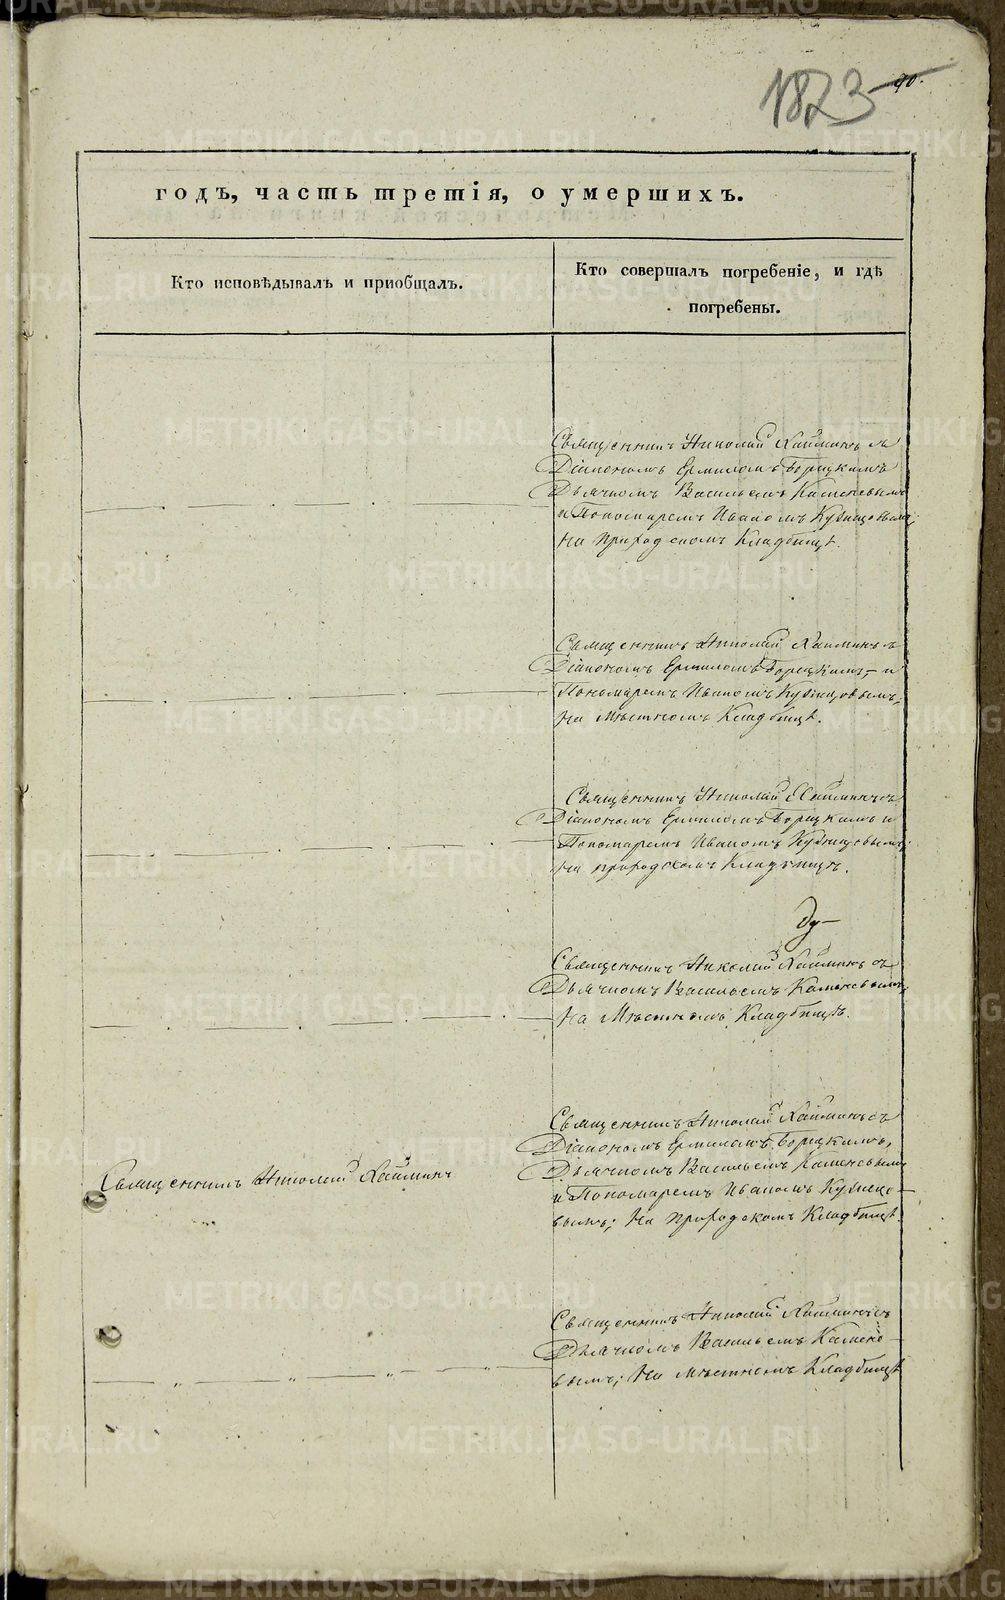 1823
90.
годъ, часть третія, о умершихъ.
Кто исповѣдывалъ и пріобщалъ.
Кто совершалъ погребеніе, и гдѣ
погребены.
Священникъ Николай съ
Діакономъ Ермиломъ Борецкимъ
Дьячкомъ Васильемъ Каменевымъ
и Пономаремъ Иваномъ Кузнецовымъ;
на приходскомъ Кладбищѣ.
Священникъ Николай съ
Діакономъ Ермиломъ Борецкимъ, и
Пономаремъ Иваномъ Кузнецовымъ;
на Мѣстномъ Кладбищѣ.
Священникъ Николай съ
Діакономъ Ермиломъ Борецкимъ и
Пономаремъ Иваномъ Кузнецовымъ;
на приходскомъ Кладбищѣ.
Священникъ Николай съ
Дьячкомъ Васильемъ Каменевымъ;
на Мѣстномъ Кладбищѣ.
Священникъ Николай съ
Діакономъ Ермиломъ Борецкимъ,
Священникъ Николай
Дьячкомъ Васильемъ Каменевымъ
и Пономаремъ Иваномъ Кузнецо-
вымъ; на приходскомъ Кладбищѣ.
Священникъ Николай съ
Дьячкомъ Васильемъ Камене-
вымъ; на мѣстномъ Кладбищѣ
METRIKI.GASO-URAL.RU